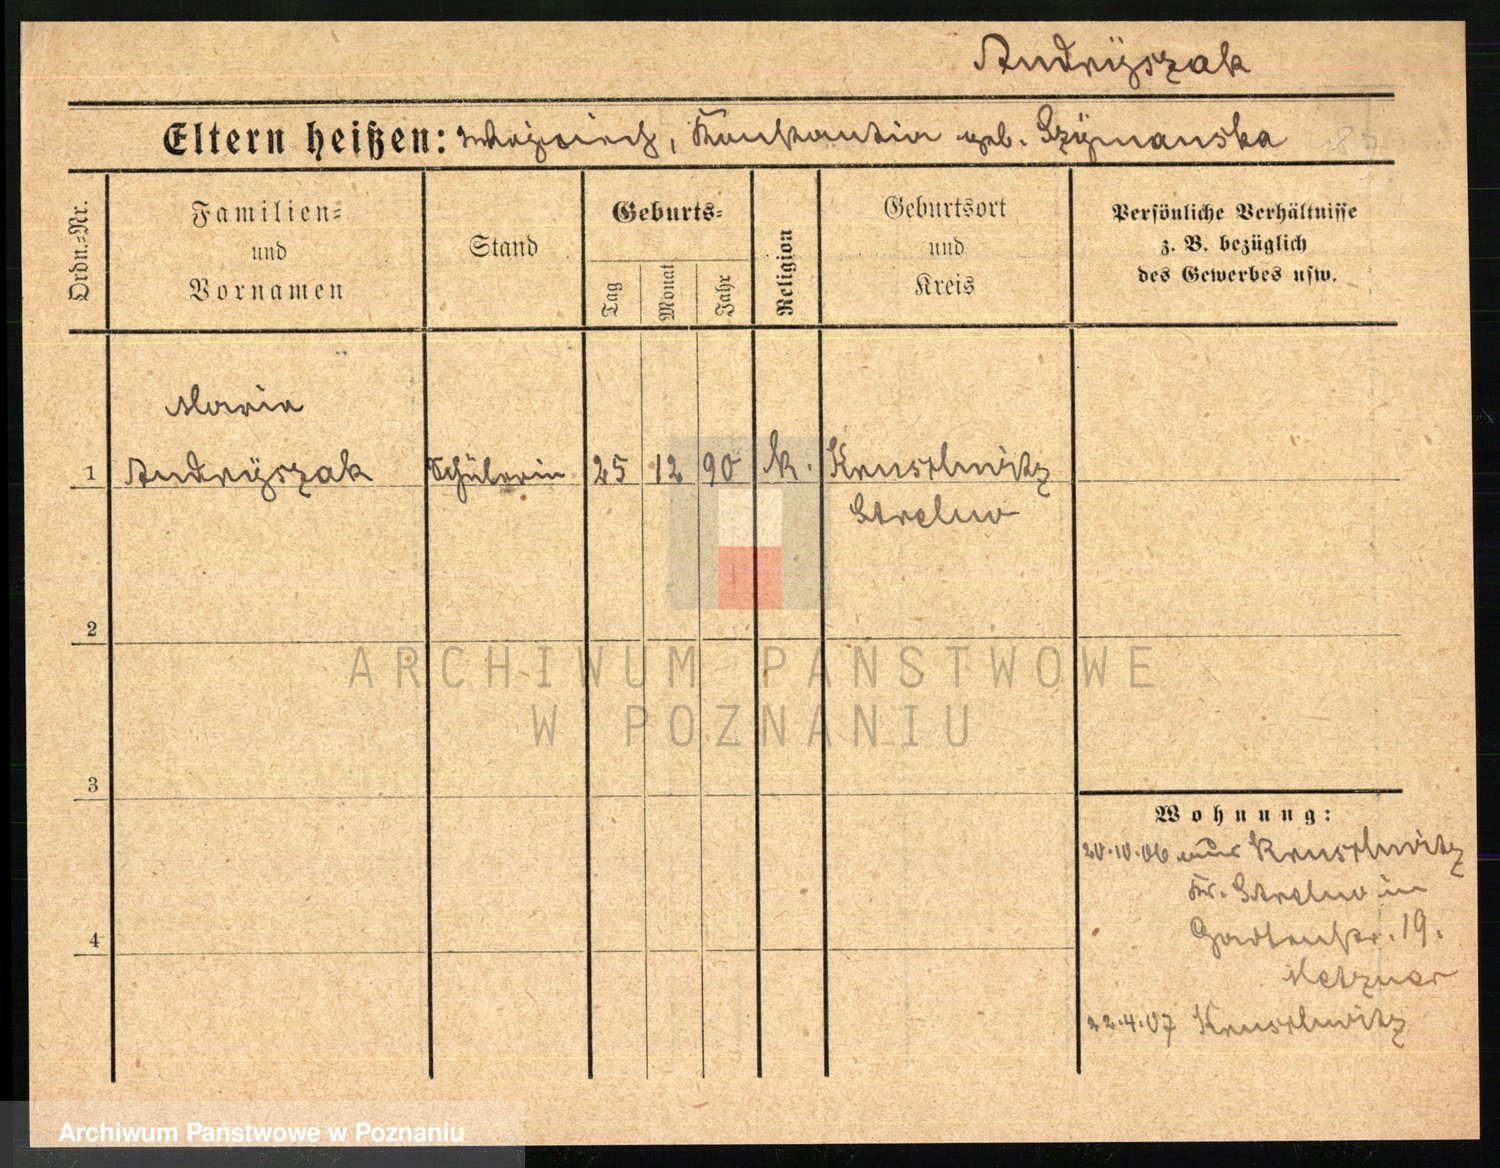 Andryszak
Eltern heißen: Wojciech, Konstantia geb. Szymanska
Ordn.-Nr.
Familien-
und
Vornamen
Stand
Geburts-
Tag
Monat
Jahr
Religion
Geburtsort
und
Kreis
Persönliche Verhältnisse
z. B. bezüglich
des Gewerbes usw.
Maria
1 Andryszak Schülerin 25 12 90 k. Kruschwitz
Strelno
2
3
4
Wohnung:
20.10.06 aus Kruschwitz
Kr. Strelno in
Gartenstr. 19.
Metzner
22.4.07 Kruschwitz
ARCHIWUM PAŃSTWOWE
W POZNANIU
Archiwum Państwowe w Poznaniu